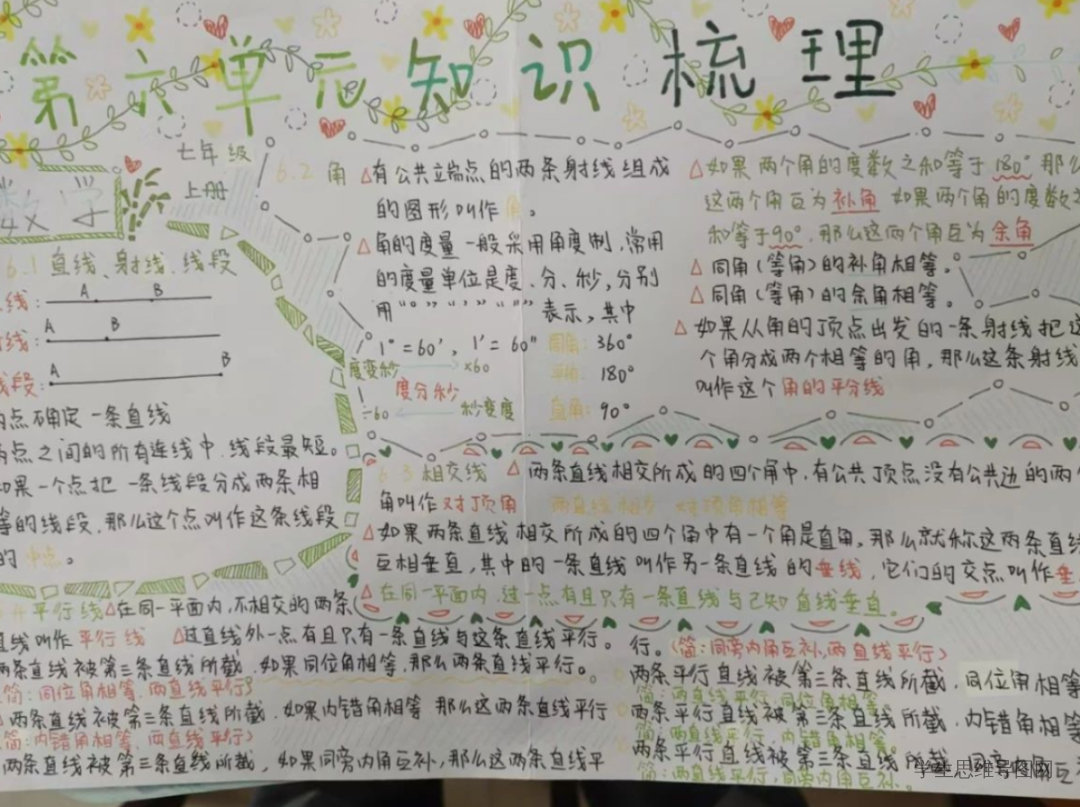 第六单元知识梳理
七年级
上册
数学
6.1 直线、射线、线段
线:
A B
线:
A B
段:
A B
点确定一条直线
点之间的所有连线中,线段最短。
如果一个点把一条线段分成两条相
等的线段,那么这个点叫作这条线段
的中点。
6.2 角
△有公共立端点的两条射线组成
的图形叫作角。
△角的度量 一般采用角度制,常用
的度量单位是度、分、秒,分别
用“°”“′”“″”表示,其中
1°=60′, 1′=60″
周角: 360°
平角: 180°
直角: 90°
度变秒 ×60
度分秒
÷60 秒变度
△如果两个角的度数之和等于180°那么
这两个角互为补角 如果两个角的度数之
和等于90°,那么这两个角互为余角
△同角(等角)的补角相等。
△同角(等角)的余角相等。
△如果从角的顶点出发的一条射线把这
个角分成两个相等的角,那么这条射线
叫作这个角的平分线
6.3 相交线 △两条直线相交所成的四个角中,有公共顶点没有公共边的两个
角叫作对顶角 两直线相交 对顶角相等
△如果两条直线相交所成的四个角中有一个角是直角,那么就称这两条直线
互相垂直,其中的一条直线叫作另一条直线的垂线,它们的交点叫作垂
△在同一平面内,过一点有且只有一条直线与已知直线垂直。
平行线△在同一平面内,不相交的两条
直线叫作平行线 △过直线外一点有且只有一条直线与这条直线平行。
两条直线被第三条直线所截,如果同位角相等,那么两条直线平行。
(简:同位角相等,两直线平行)
两条直线被第三条直线所截,如果内错角相等 那么这两条直线平行
(简:内错角相等、两直线平行)
两条直线被第三条直线所截,如果同旁内角互补,那么这两条直线平
行。(简:同旁内角互补,两直线平行)
两条平行直线被第三条直线所截,同位角相等
简:两直线平行,同位角相等
两条平行直线被第三条直线所截,内错角相等
简:两直线平行,内错角相等。
两条平行直线被第三条直线所截 同旁内角互
简:两直线平行,同旁内角互补。
学生思维导图网